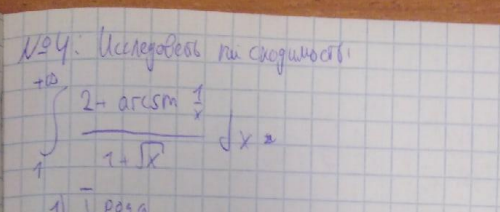 №4: Исследовать на сходимость:
+∞
∫ 2+arcsin 1/x / 1+√x dx =
1
1) I рода